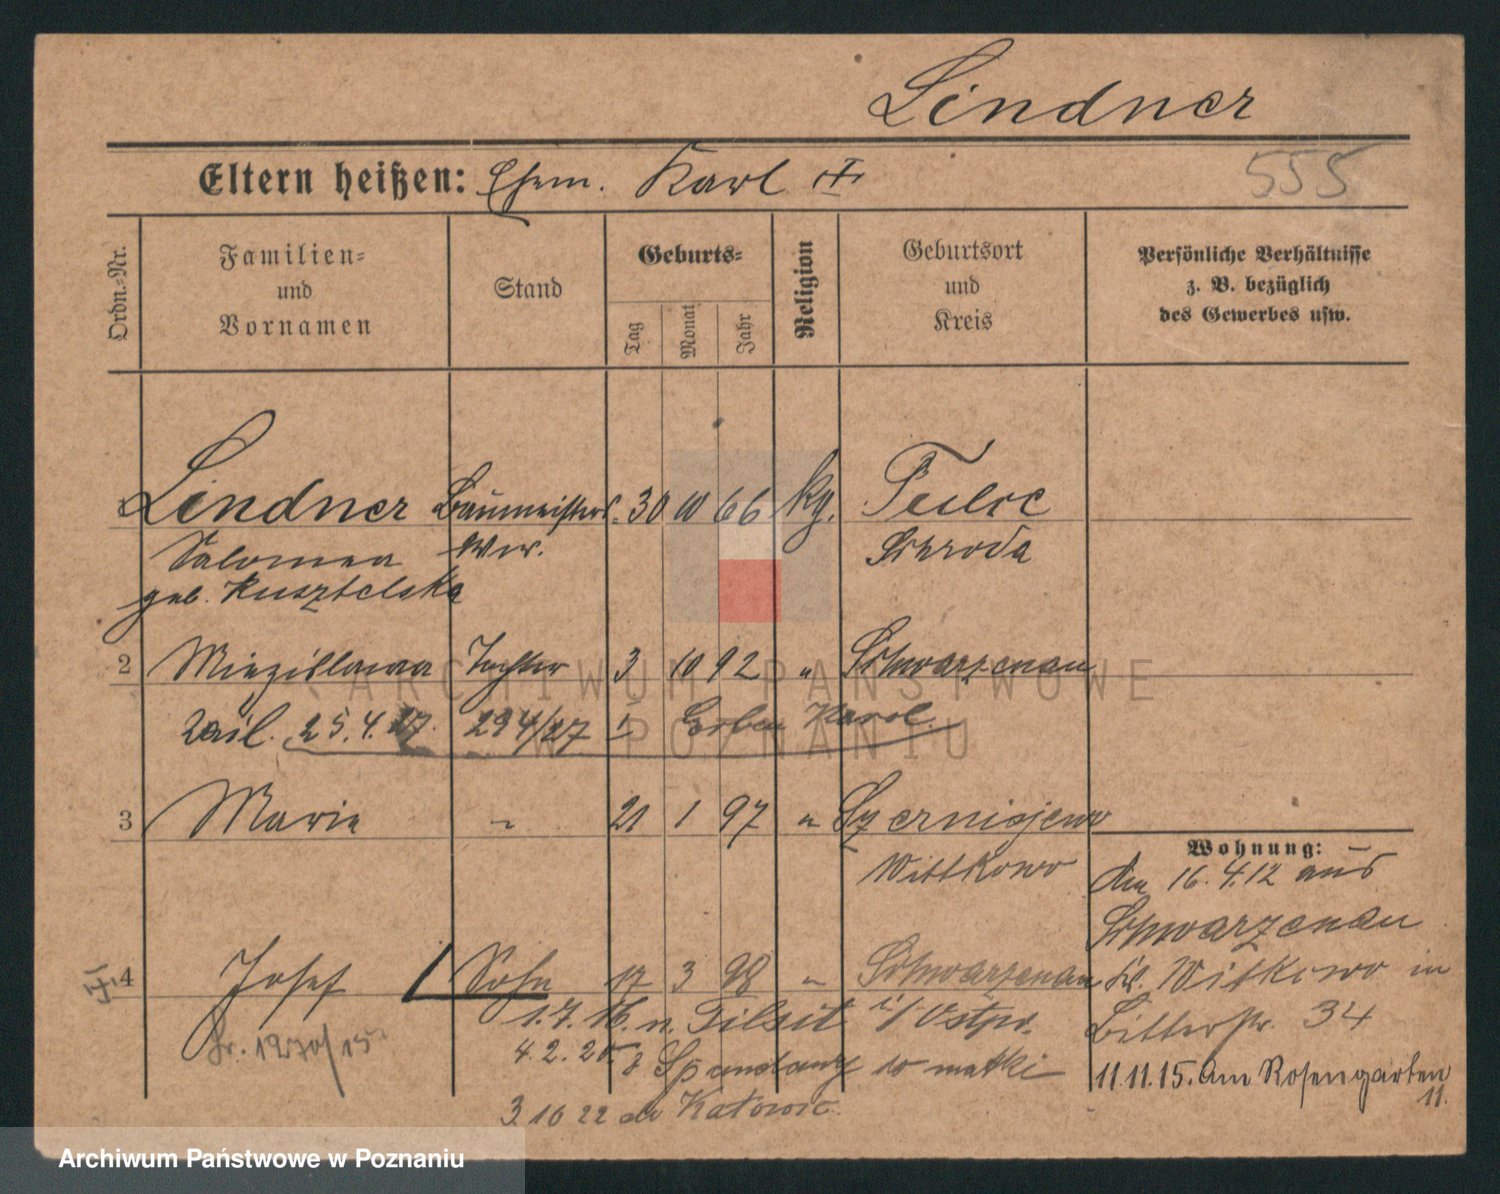 Lindner
Eltern heißen: Ehem. Karl
555
Ordn.-Nr.
Familien-
und
Vornamen
Stand
Geburts-
Tag
Monat
Jahr
Religion
Geburtsort
und
Kreis
Persönliche Verhältnisse
z. B. bezüglich
des Gewerbes usw.
1 Lindner Baumeisters- 30 10 66 kg. Tulce
Salomea Wwe. Schroda
geb. Kusztelska
2 Miezislawa Tochter 3 10 92 " Schwarzenau
25.4.27. 294/27 Karol.
3 Marie " 21 1 97 " Czerniejewo
Wittkowo
4 Josef Sohn 17 3 98 " Schwarzenau
1.7.16. n. Tilsit i/Ostpr.
1270/15
4.2.20 z Spandawy do matki
3.10 22 do Katowic.
Wohnung:
Am 16.4.12 aus
Schwarzenau
Kr. Witkowo in
Bitterstr. 34
11.11.15. Am Rosengarten
11.
ARCHIWUM PAŃSTWOWE
W POZNANIU
Archiwum Państwowe w Poznaniu